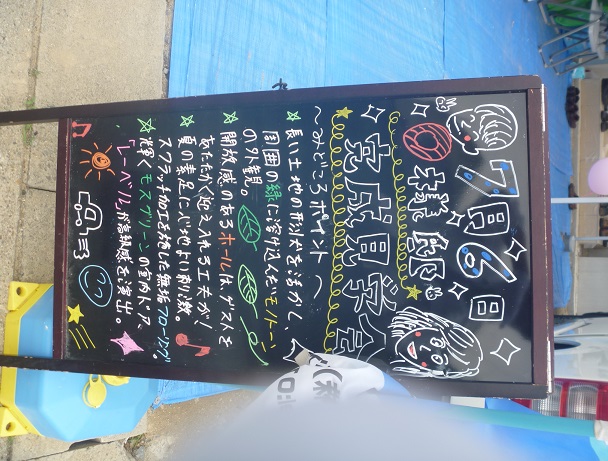 7月6日
様邸
完成見学会
～みどころポイント～
☆長い土地の形状を活かして、
周囲の緑に溶け込んだ"モノトーン"
の外観。
☆開放感のあるホールは、ゲストを
あたたかく迎え入れる工夫が!
☆夏の素足に心地よい刺激。
スクラッチ加工を施した無垢フローリング。
☆輝くモスグリーンの室内ドア。
「レーベル」が高級感を演出